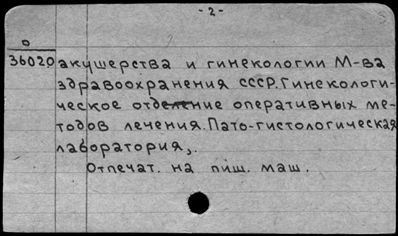 - 2 -
О
36020 акушерства и гинекологии М-ва
здравоохранения СССР. Гинекологи-
ческое отделение оперативных ме-
тодов лечения. Пато-гистологическая
лаборатория,.
Отпечат. на пиш. маш.